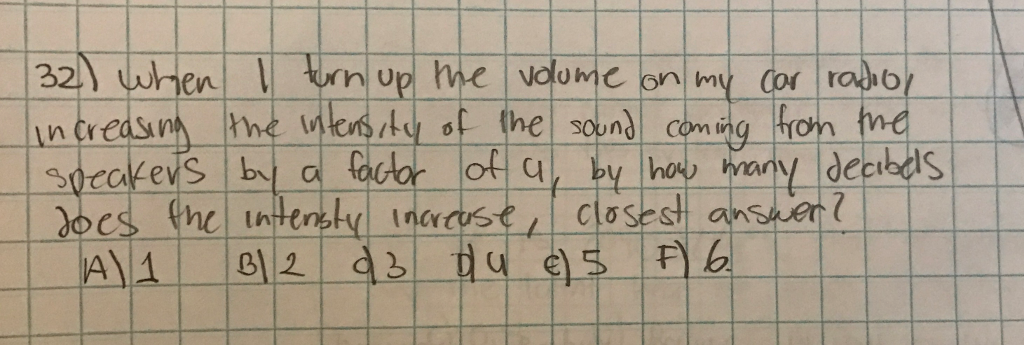 32) When I turn up the volume on my car radio,
increasing the intensity of the sound coming from the
speakers by a factor of 4, by how many decibels
does the intensty increase, closest answer?
A) 1 B) 2 C) 3 D) 4 E) 5 F) 6.